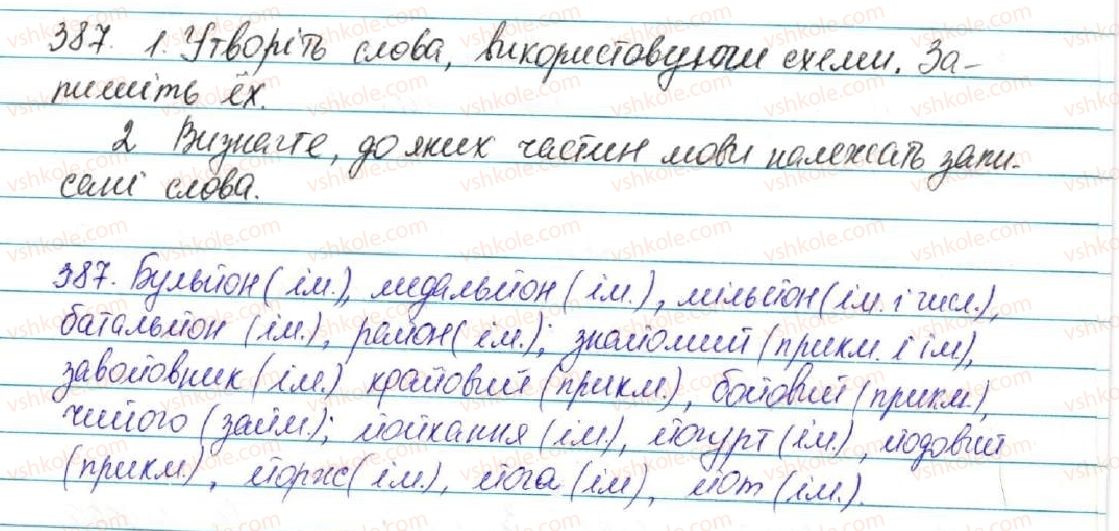 387. 1. Утворіть слова, використовуючи схеми. За-
пишіть їх.
2 Визначте, до яких частин мови належать запи-
сані слова.
387. Бульйон (ім.), медальйон (ім.), мільйон (ім. і числ.),
батальйон (ім.), район (ім.); знайомий (прикм. і ім),
завойовник (ім.) крайовий (прикм.), бойовий (прикм.),
чийого (займ.); йойкання (ім.), йогурт (ім.), йодовий
(прикм.), йорж (ім.), йога (ім), йот (ім.).